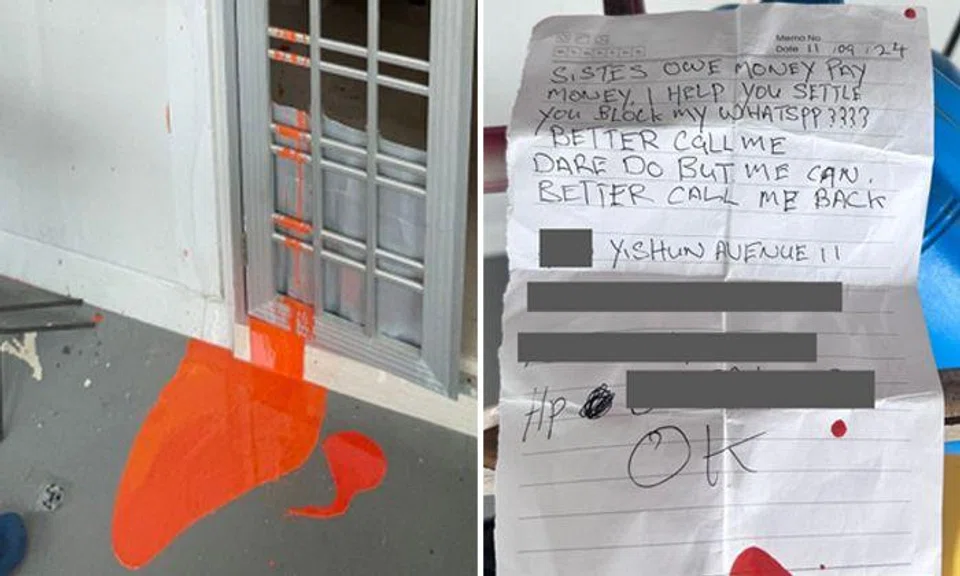 Memo No.
Date 11/09/24
SISTES OWE MONEY PAY
MONEY. I HELP YOU SETTLE
YOU BLOCK MY WHATSPP????
BETTER CALL ME
DARE DO BUT ME CAN.
BETTER CALL ME BACK
YISHUN AVENUE 11
HP
OK